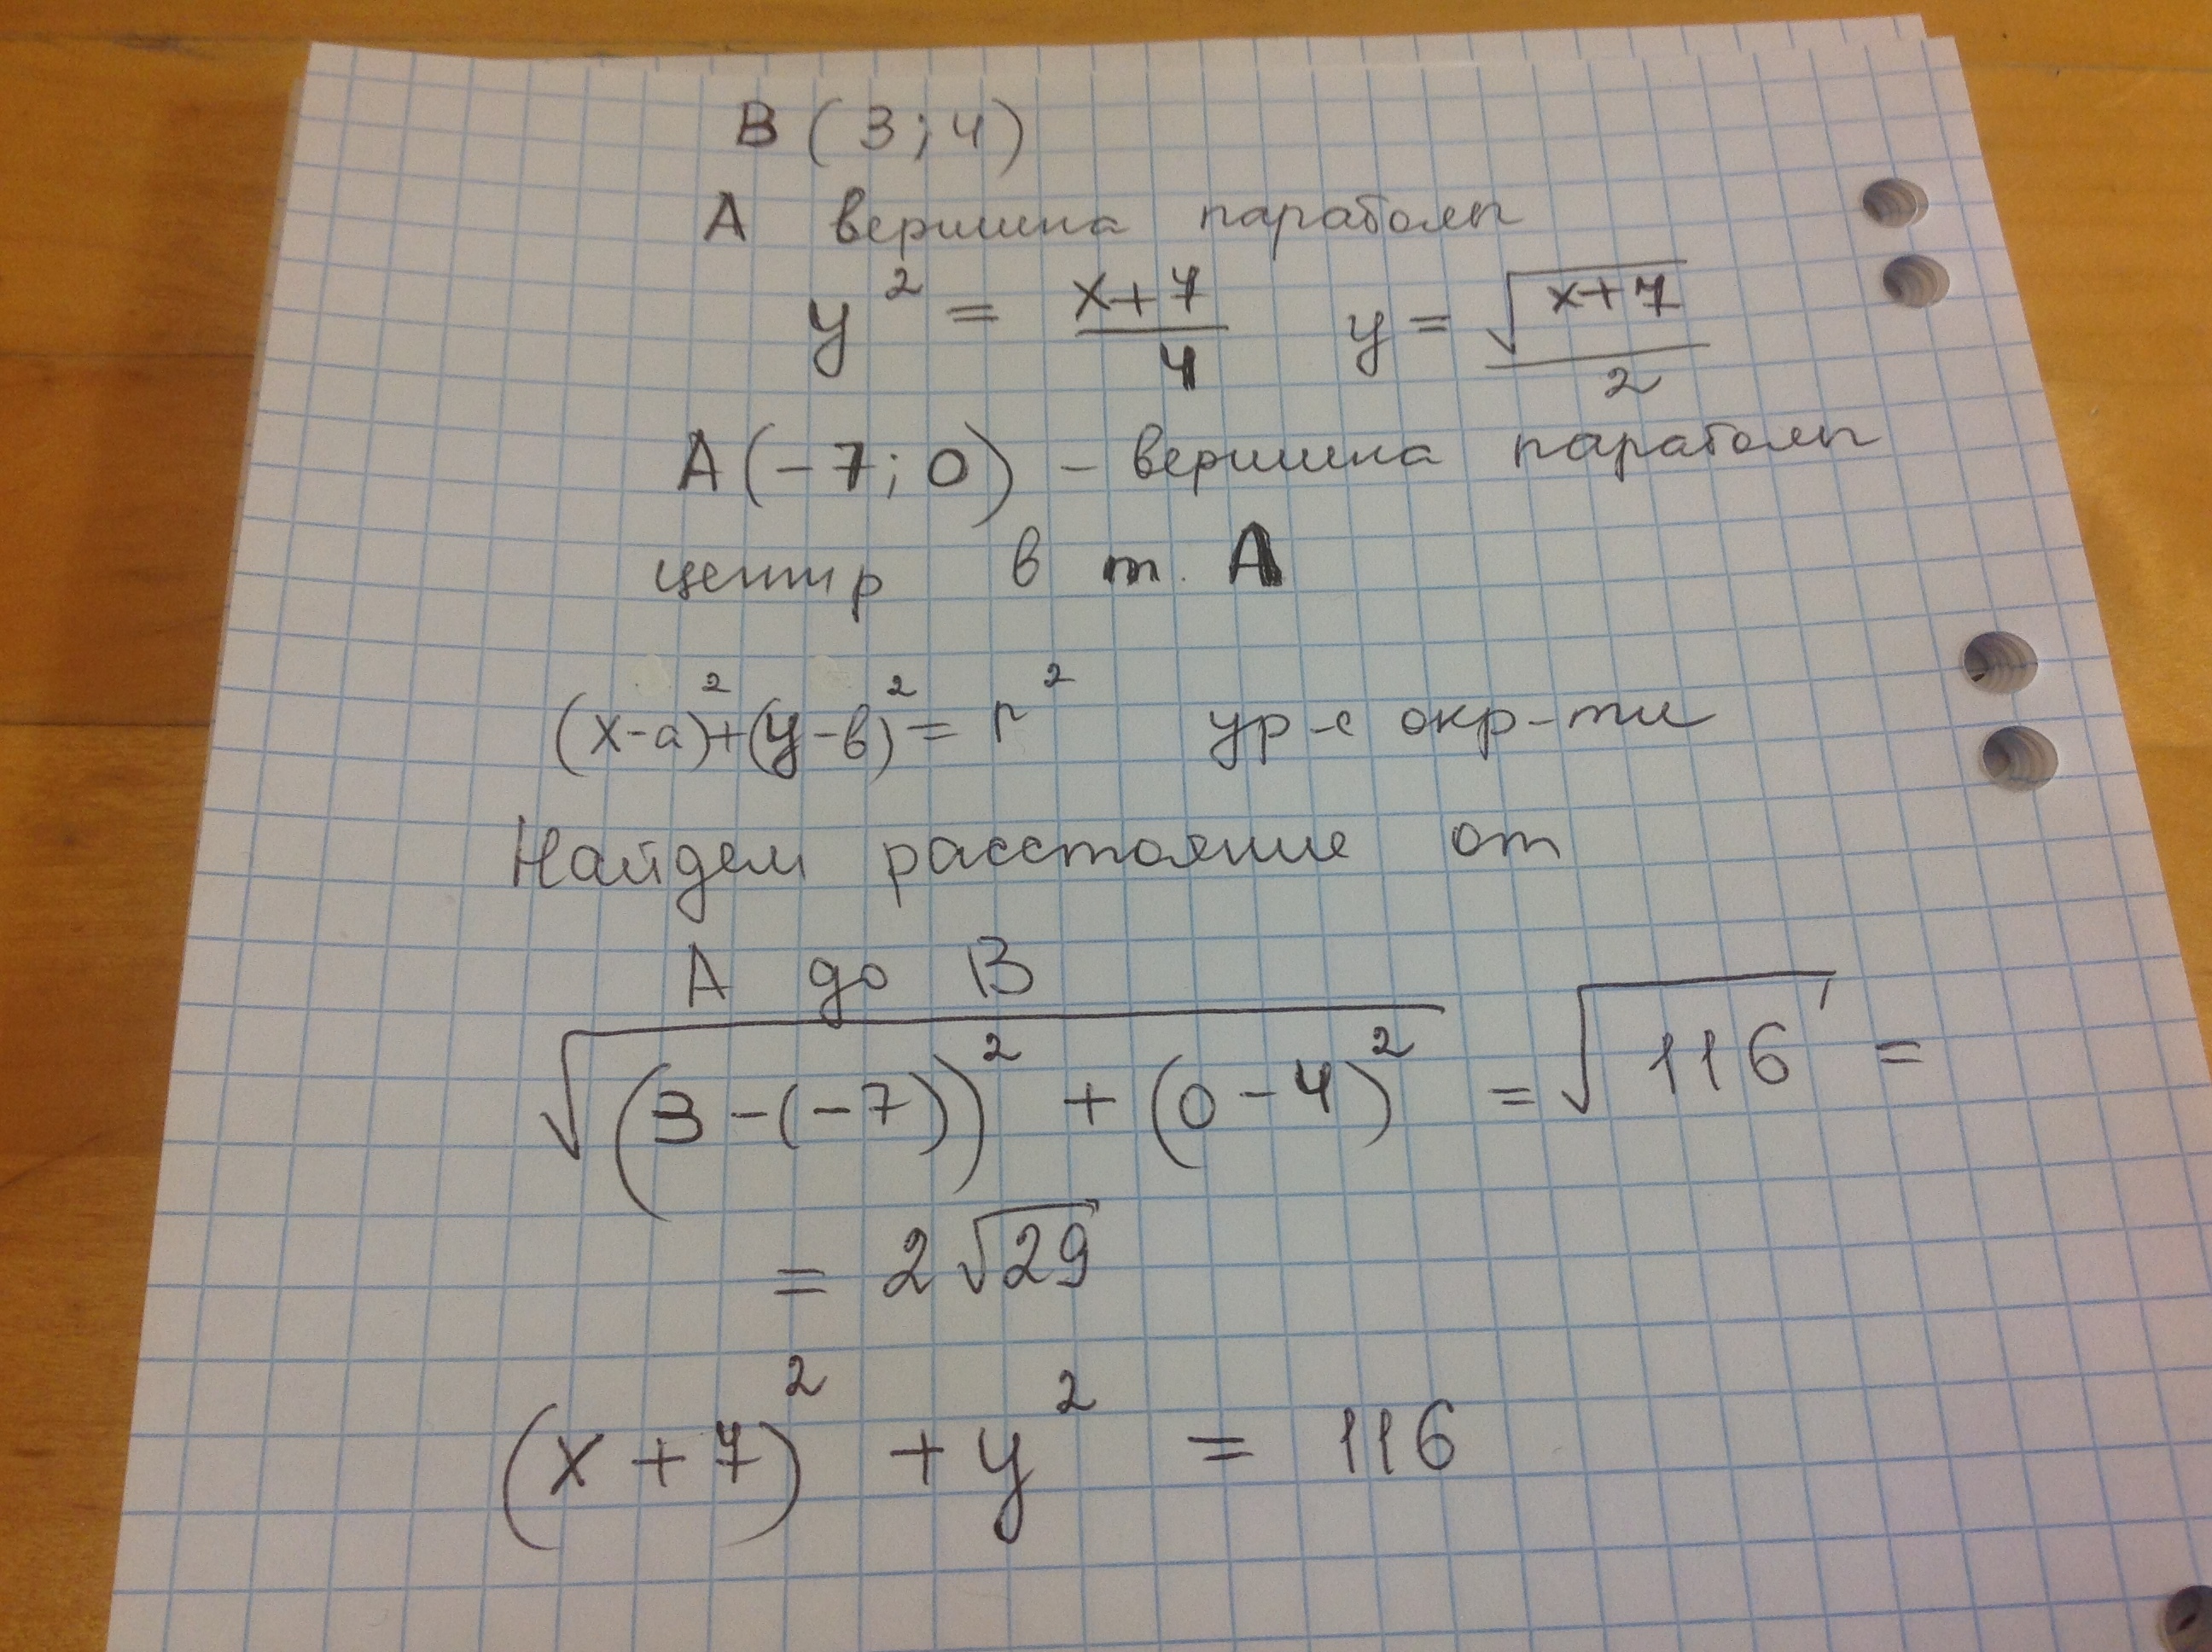 В (3; 4)
А вершина параболы
y² = (x+7)/4 y = √(x+7)/2
А(-7; 0) - вершина параболы
центр в т. А
(x-a)²+(y-в)² = r² ур-е окр-ти
Найдем расстояние от
А до В
√((3-(-7))² + (0-4)²) = √116 =
= 2√29
(x+7)² + y² = 116